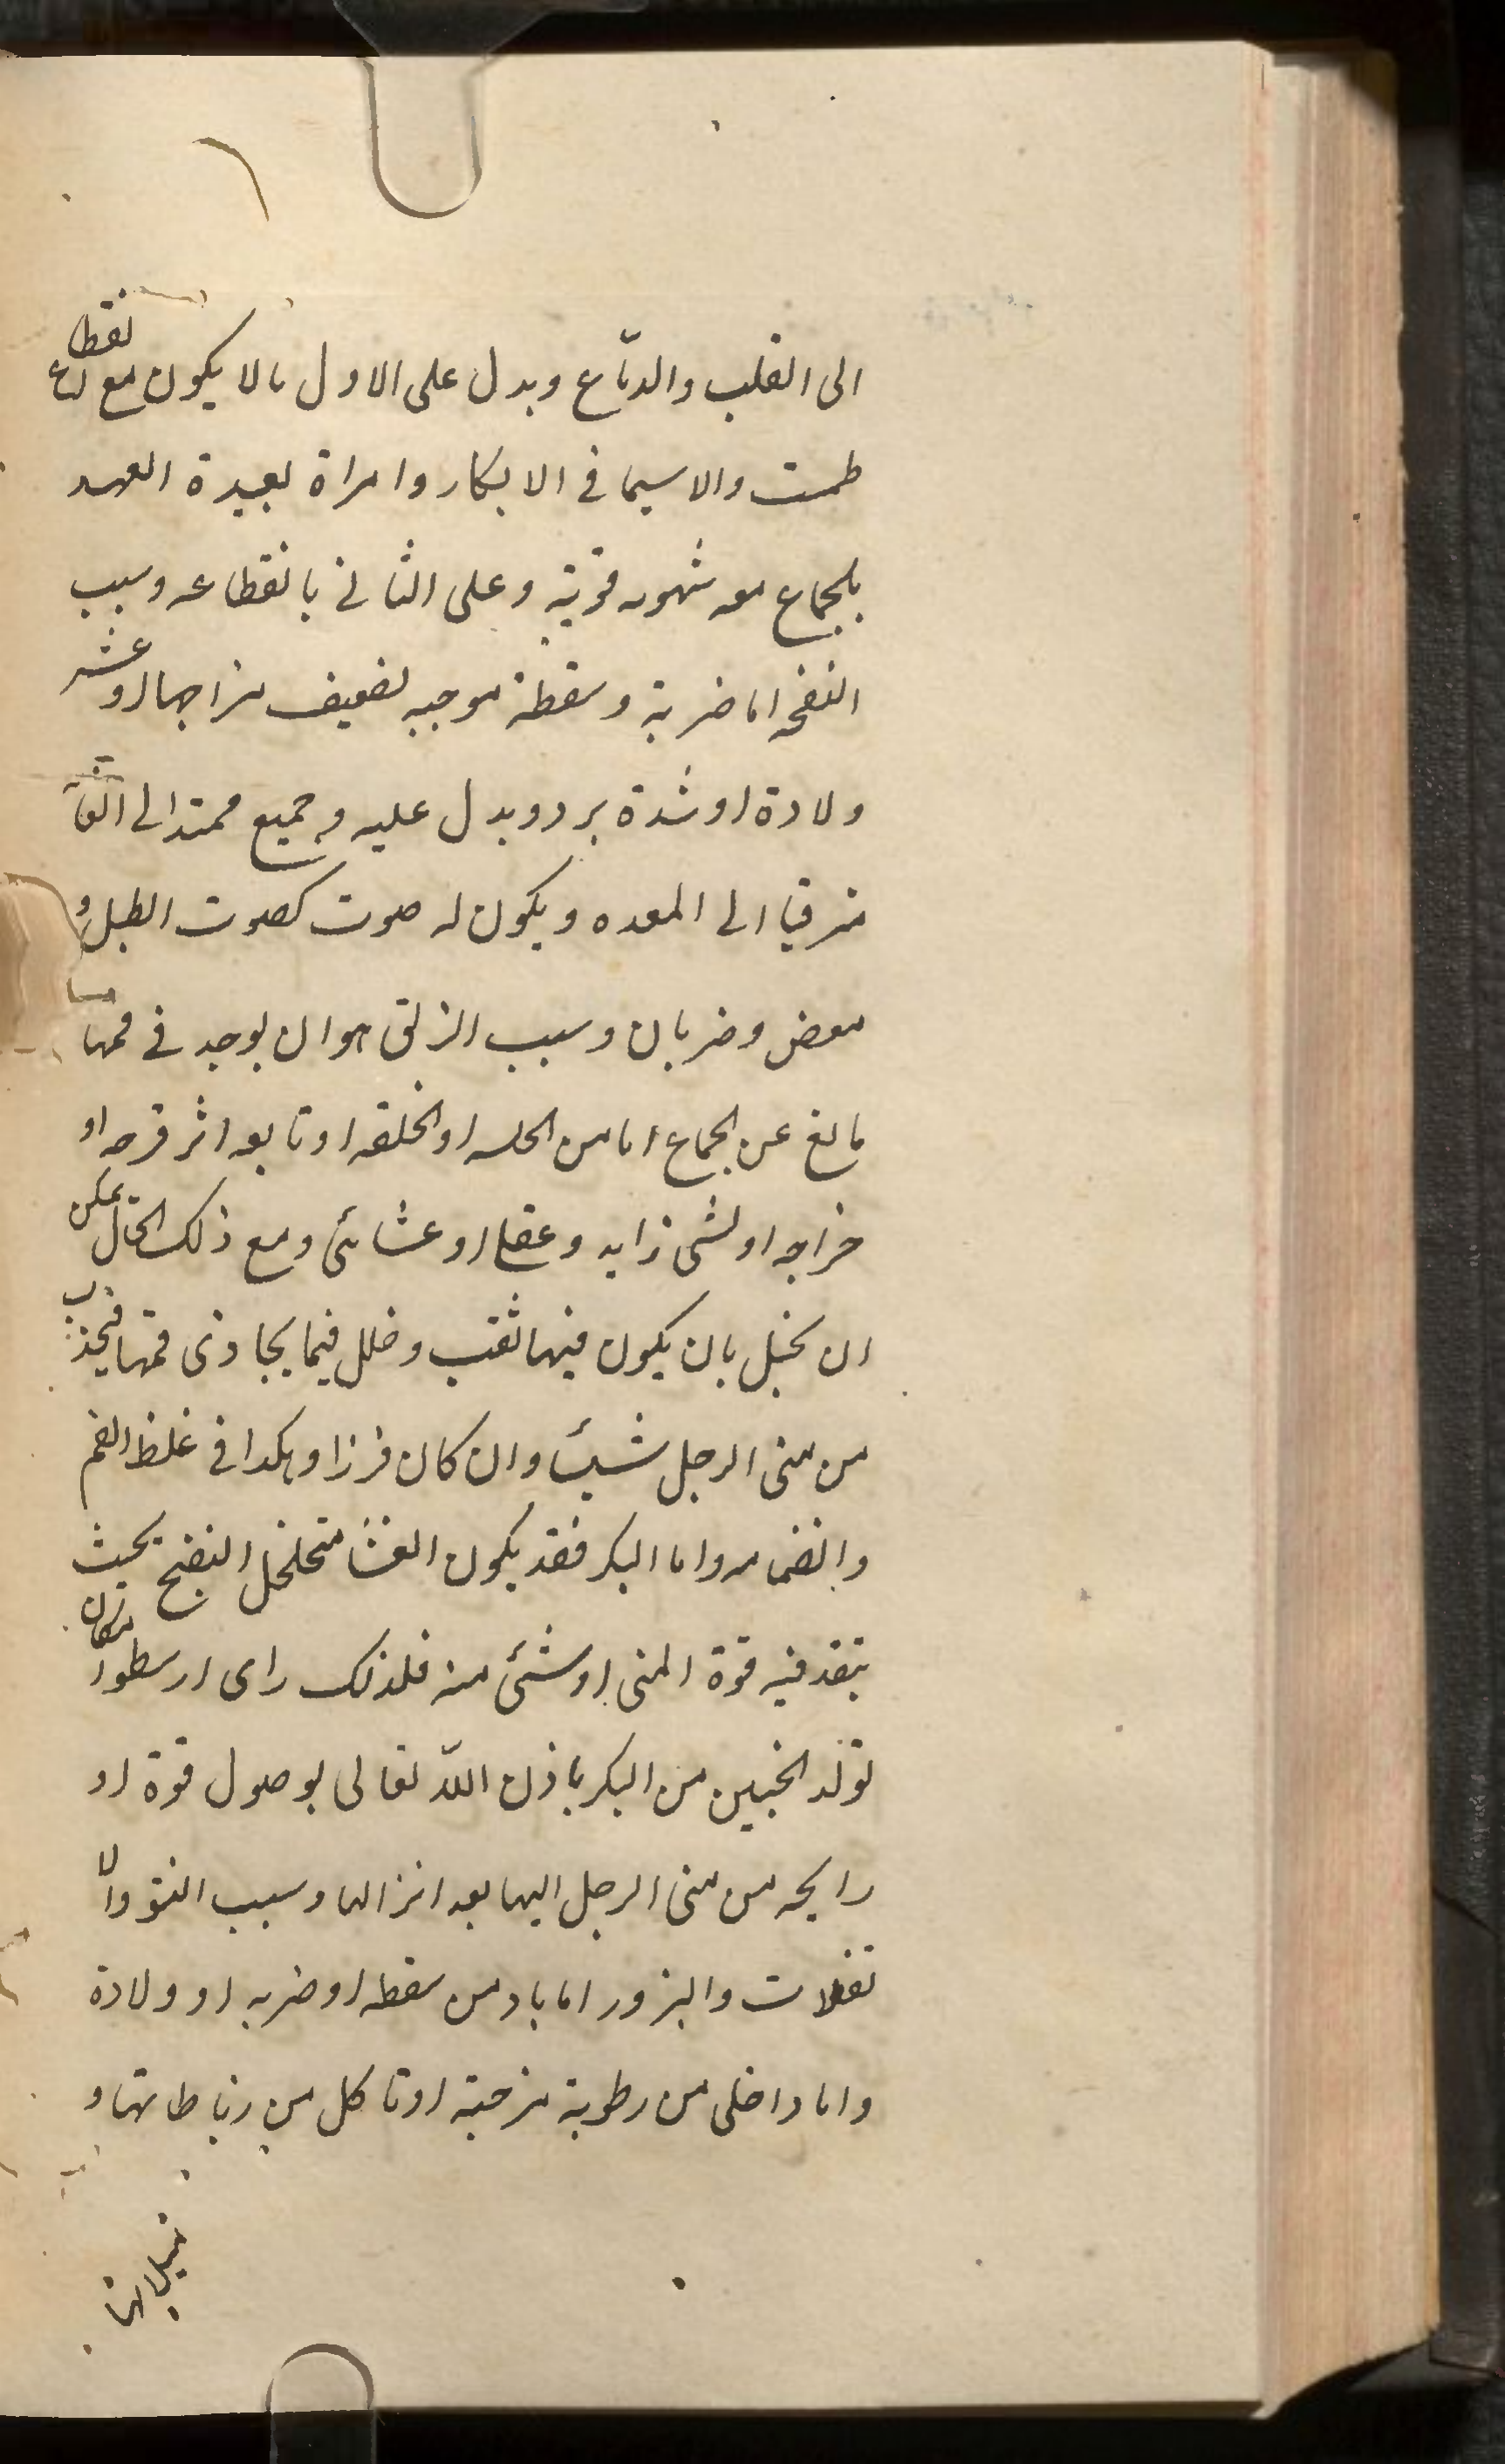 الى القلب والدماغ ويدل على الاول بالا يكون مع انقطاع
طمث والاسيما فى الابكار وامراة بعيدة العهد
بالجماع معه شهوه قوية وعلى الثانى بانقطاعه وسبب
النفخه اما ضربة وسقطة موجبه لضعف مزاجها او عسر
ولادة او شدة برد ويدل عليه وجع ممتد الى العانة
مترقيا الى المعده ويكون له صوت كصوت الطبل و
مغص وضربان وسبب الرتق هو ان يوجد فى فمها
مانع عن الجماع اما من الخلقه او تابعه اثر قرحه او
خراجه او لشى زايد و او غشائى ومع ذلك الحال يمكن
ان تحبل بان يكون فيها ثقب وخلل فيما يحاذى فمها فيجذب
من منى الرجل شيئا وان كان فرزا وهكذا فى غلظ الفم
وانضمامه واما البكر فقد يكون الغشا متخلخل النضج بحيث
ينفذ فيه قوة المنى او شئ منه فلذلك راى ارسطو امكان
تولد الجنين من البكر باذن الله تعالى بوصول قوة او
رايحه من منى الرجل اليها بعد انزالها وسبب النتو والا
نفلات والبزور اما باد من سقطه او ضربه او ولادة
واما داخلى من رطوبة مزحبة او تاكل من رباطاتها و